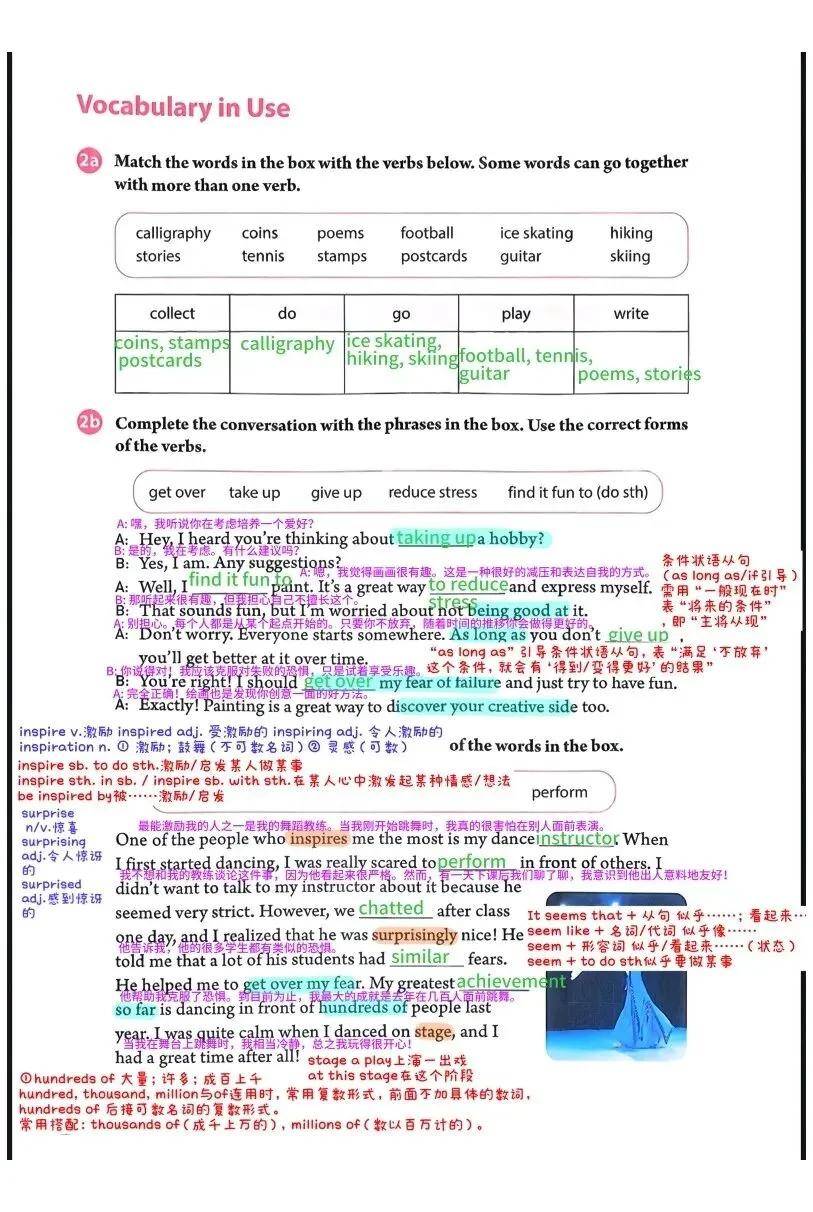 Vocabulary in Use
2a Match the words in the box with the verbs below. Some words can go together
with more than one verb.
calligraphy coins poems football ice skating hiking
stories tennis stamps postcards guitar skiing
collect do go play write
coins, stamps calligraphy ice skating,
postcards hiking, skiing football, tennis,
guitar poems, stories
2b Complete the conversation with the phrases in the box. Use the correct forms
of the verbs.
get over take up give up reduce stress find it fun to (do sth)
A: 嘿，我听说你在考虑培养一个爱好？
A: Hey, I heard you're thinking about taking up a hobby?
B: 是的，我在考虑。有什么建议吗？
B: Yes, I am. Any suggestions?
A: 嗯，我觉得画画很有趣。这是一种很好的减压和表达自我的方式。
A: Well, I find it fun to paint. It's a great way to reduce stress and express myself.
B: 那听起来很有趣，但我担心自己不擅长这个。
B: That sounds fun, but I'm worried about not being good at it.
A: 别担心。每个人都是从某个起点开始的。只要你不放弃，随着时间的推移你会做得更好的。
A: Don't worry. Everyone starts somewhere. As long as you don't give up ,
you'll get better at it over time.
条件状语从句
（as long as/if引导）
需用“一般现在时”
表“将来的条件”
，即“主将从现”
“as long as”引导条件状语从句，表“满足‘不放弃’
这个条件，就会有‘得到/变得更好’的结果”
B: 你说得对！我应该克服对失败的恐惧，只是试着享受乐趣。
B: You're right! I should get over my fear of failure and just try to have fun.
A: 完全正确！绘画也是发现你创意一面的好方法。
A: Exactly! Painting is a great way to discover your creative side too.
inspire v.激励 inspired adj. 受激励的 inspiring adj. 令人激励的
inspiration n. ① 激励；鼓舞（不可数名词）② 灵感（可数）
of the words in the box.
inspire sb. to do sth.激励/启发某人做某事
inspire sth. in sb. / inspire sb. with sth.在某人心中激发起某种情感/想法
be inspired by被……激励/启发
perform
surprise
n/v.惊喜
surprising
adj.令人惊讶
的
surprised
adj.感到惊讶
的
最能激励我的人之一是我的舞蹈教练。当我刚开始跳舞时，我真的很害怕在别人面前表演。
One of the people who inspires me the most is my dance instructor. When
I first started dancing, I was really scared to perform in front of others. I
我不想和我的教练谈论这件事，因为他看起来很严格。然而，有一天下课后我们聊了聊，我意识到他出人意料地友好！
didn't want to talk to my instructor about it because he
seemed very strict. However, we chatted after class
one day, and I realized that he was surprisingly nice! He
他告诉我，他的很多学生都有类似的恐惧。
told me that a lot of his students had similar fears.
He helped me to get over my fear. My greatest achievement
他帮助我克服了恐惧。到目前为止，我最大的成就是去年在几百人面前跳舞。
so far is dancing in front of hundreds of people last
year. I was quite calm when I danced on stage, and I
当我在舞台上跳舞时，我相当冷静，总之我玩得很开心！
had a great time after all!
It seems that + 从句 似乎……；看起来…
seem like + 名词/代词 似乎像……
seem + 形容词 似乎/看起来……（状态）
seem + to do sth似乎要做某事
stage a play上演一出戏
at this stage在这个阶段
①hundreds of 大量；许多；成百上千
hundred, thousand, million与of连用时，常用复数形式，前面不加具体的数词，
hundreds of 后接可数名词的复数形式。
常用搭配：thousands of（成千上万的），millions of（数以百万计的）。